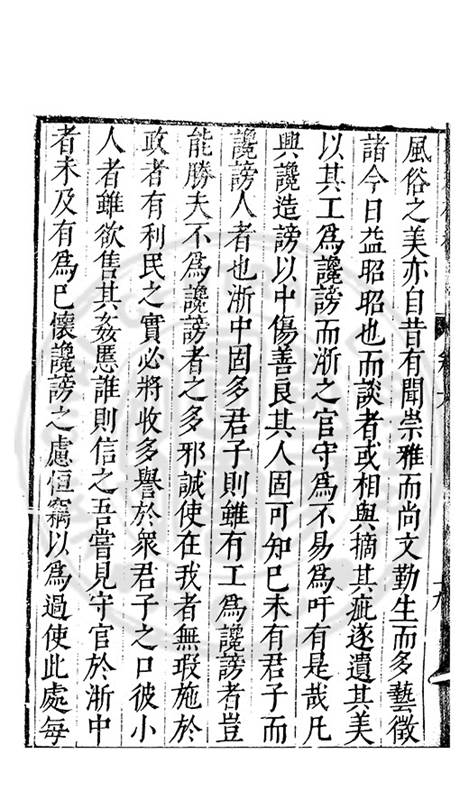 風俗之美亦自昔有聞崇雅而尚文勤生而多藝徵
諸今日益昭昭也而談者或相與摘其疵遂遺其美
以其工爲讒謗而浙之官守爲不易爲吁有是哉凡
興讒造謗以中傷善良其人固可知已未有君子而
讒謗人者也浙中固多君子則雖有工爲讒謗者豈
能勝夫不爲讒謗者之多邪誠使在我者無瑕施於
政者有利民之實必將收多譽於衆君子之口彼小
人者雖欲售其姦慝誰則信之吾嘗見守官於浙中
者未及有爲已懷讒謗之慮恒竊以爲過使此處每